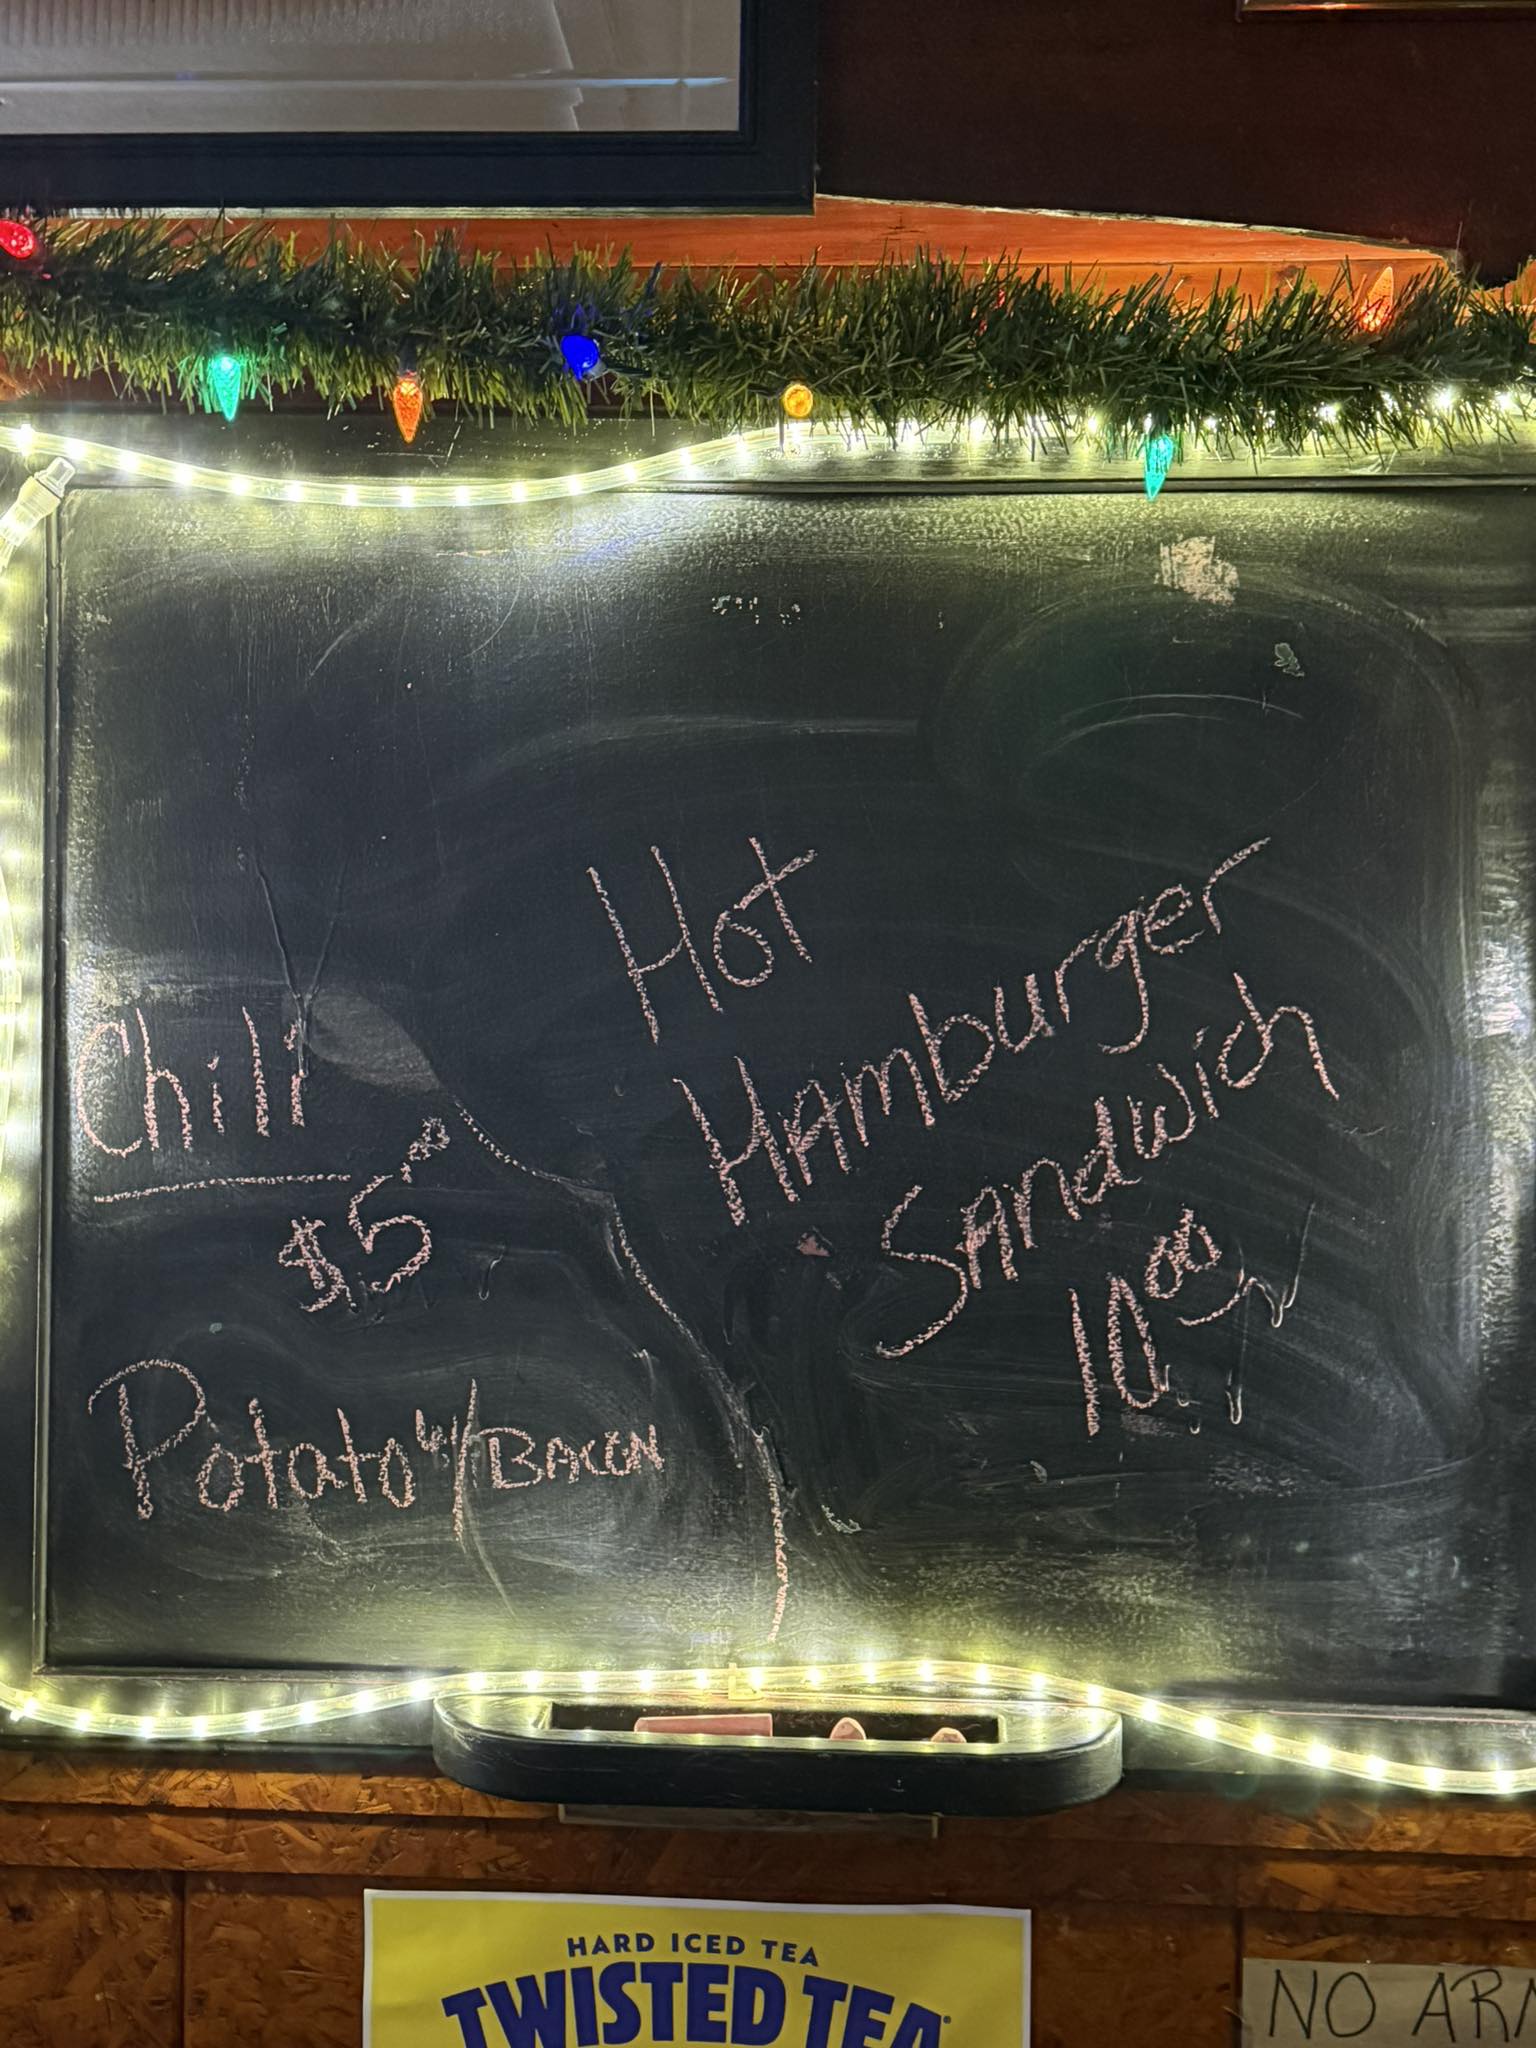 Chili
$5.00
Potato w/ BACON
Hot
HAmburger
SANdwich
10.00
HARD ICED TEA
TWISTED TEA
NO ARM